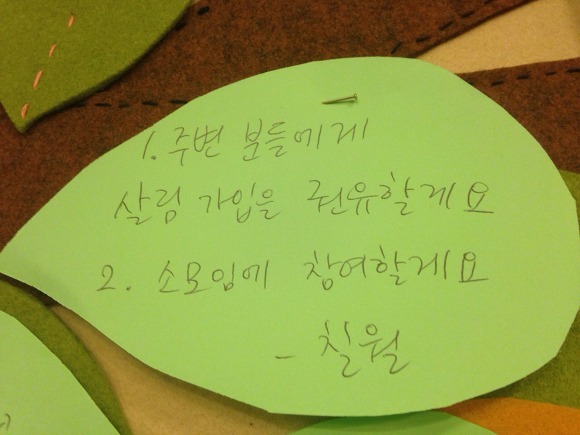 1. 주변 분들에게
살림 가입을 권유할게요
2. 소모임에 참여할게요
- 칠월